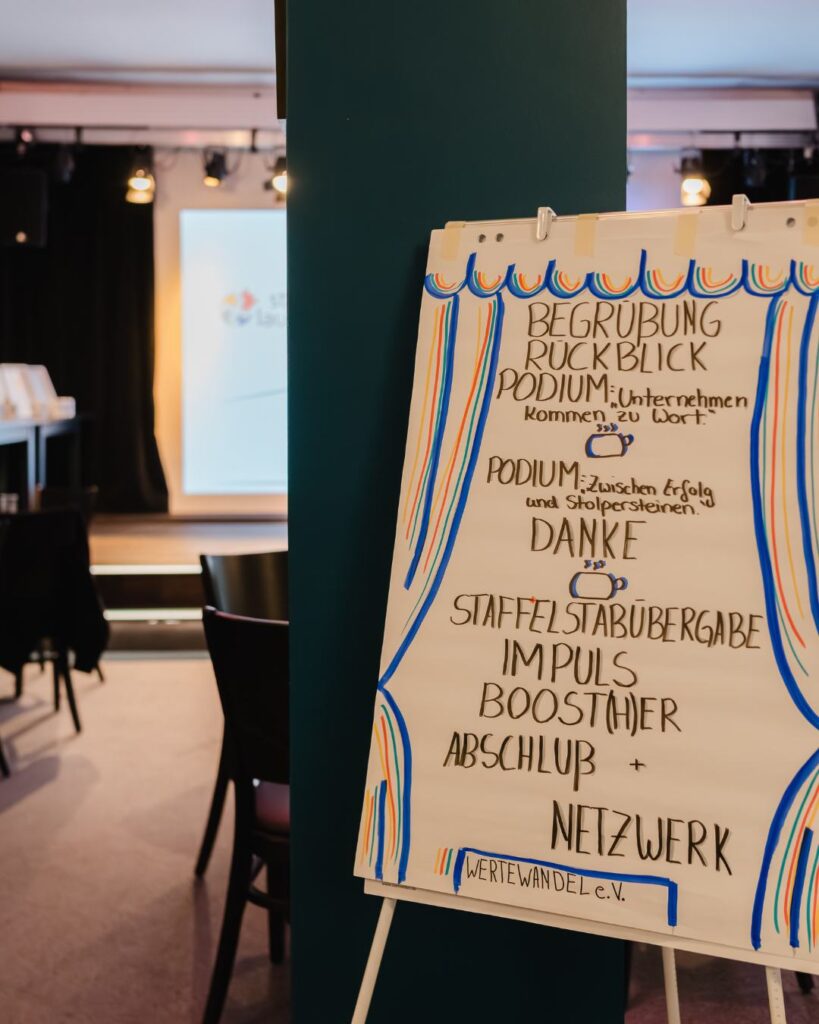 BEGRÜẞUNG
RÜCKBLICK
PODIUM: „Unternehmen
kommen zu Wort."
PODIUM: „Zwischen Erfolg
und Stolpersteinen."
DANKE
STAFFELSTABÜBERGABE
IMPULS
BOOST(H)ER
ABSCHLUß +
NETZWERK
WERTEWANDEL e.V.